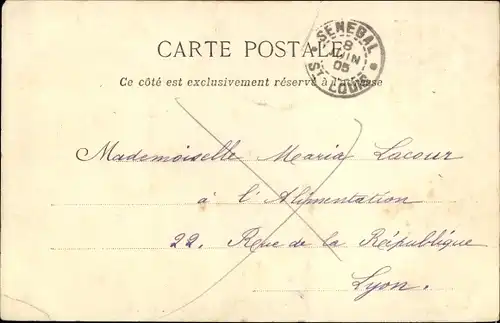 CARTE POSTALE
SÉNÉGAL
8
JUIN
05
ST LOUIS
Ce côté est exclusivement réservé à l'adresse
Mademoiselle Maria Lacour
à l'Alimentation
22. Rue de la République
Lyon.